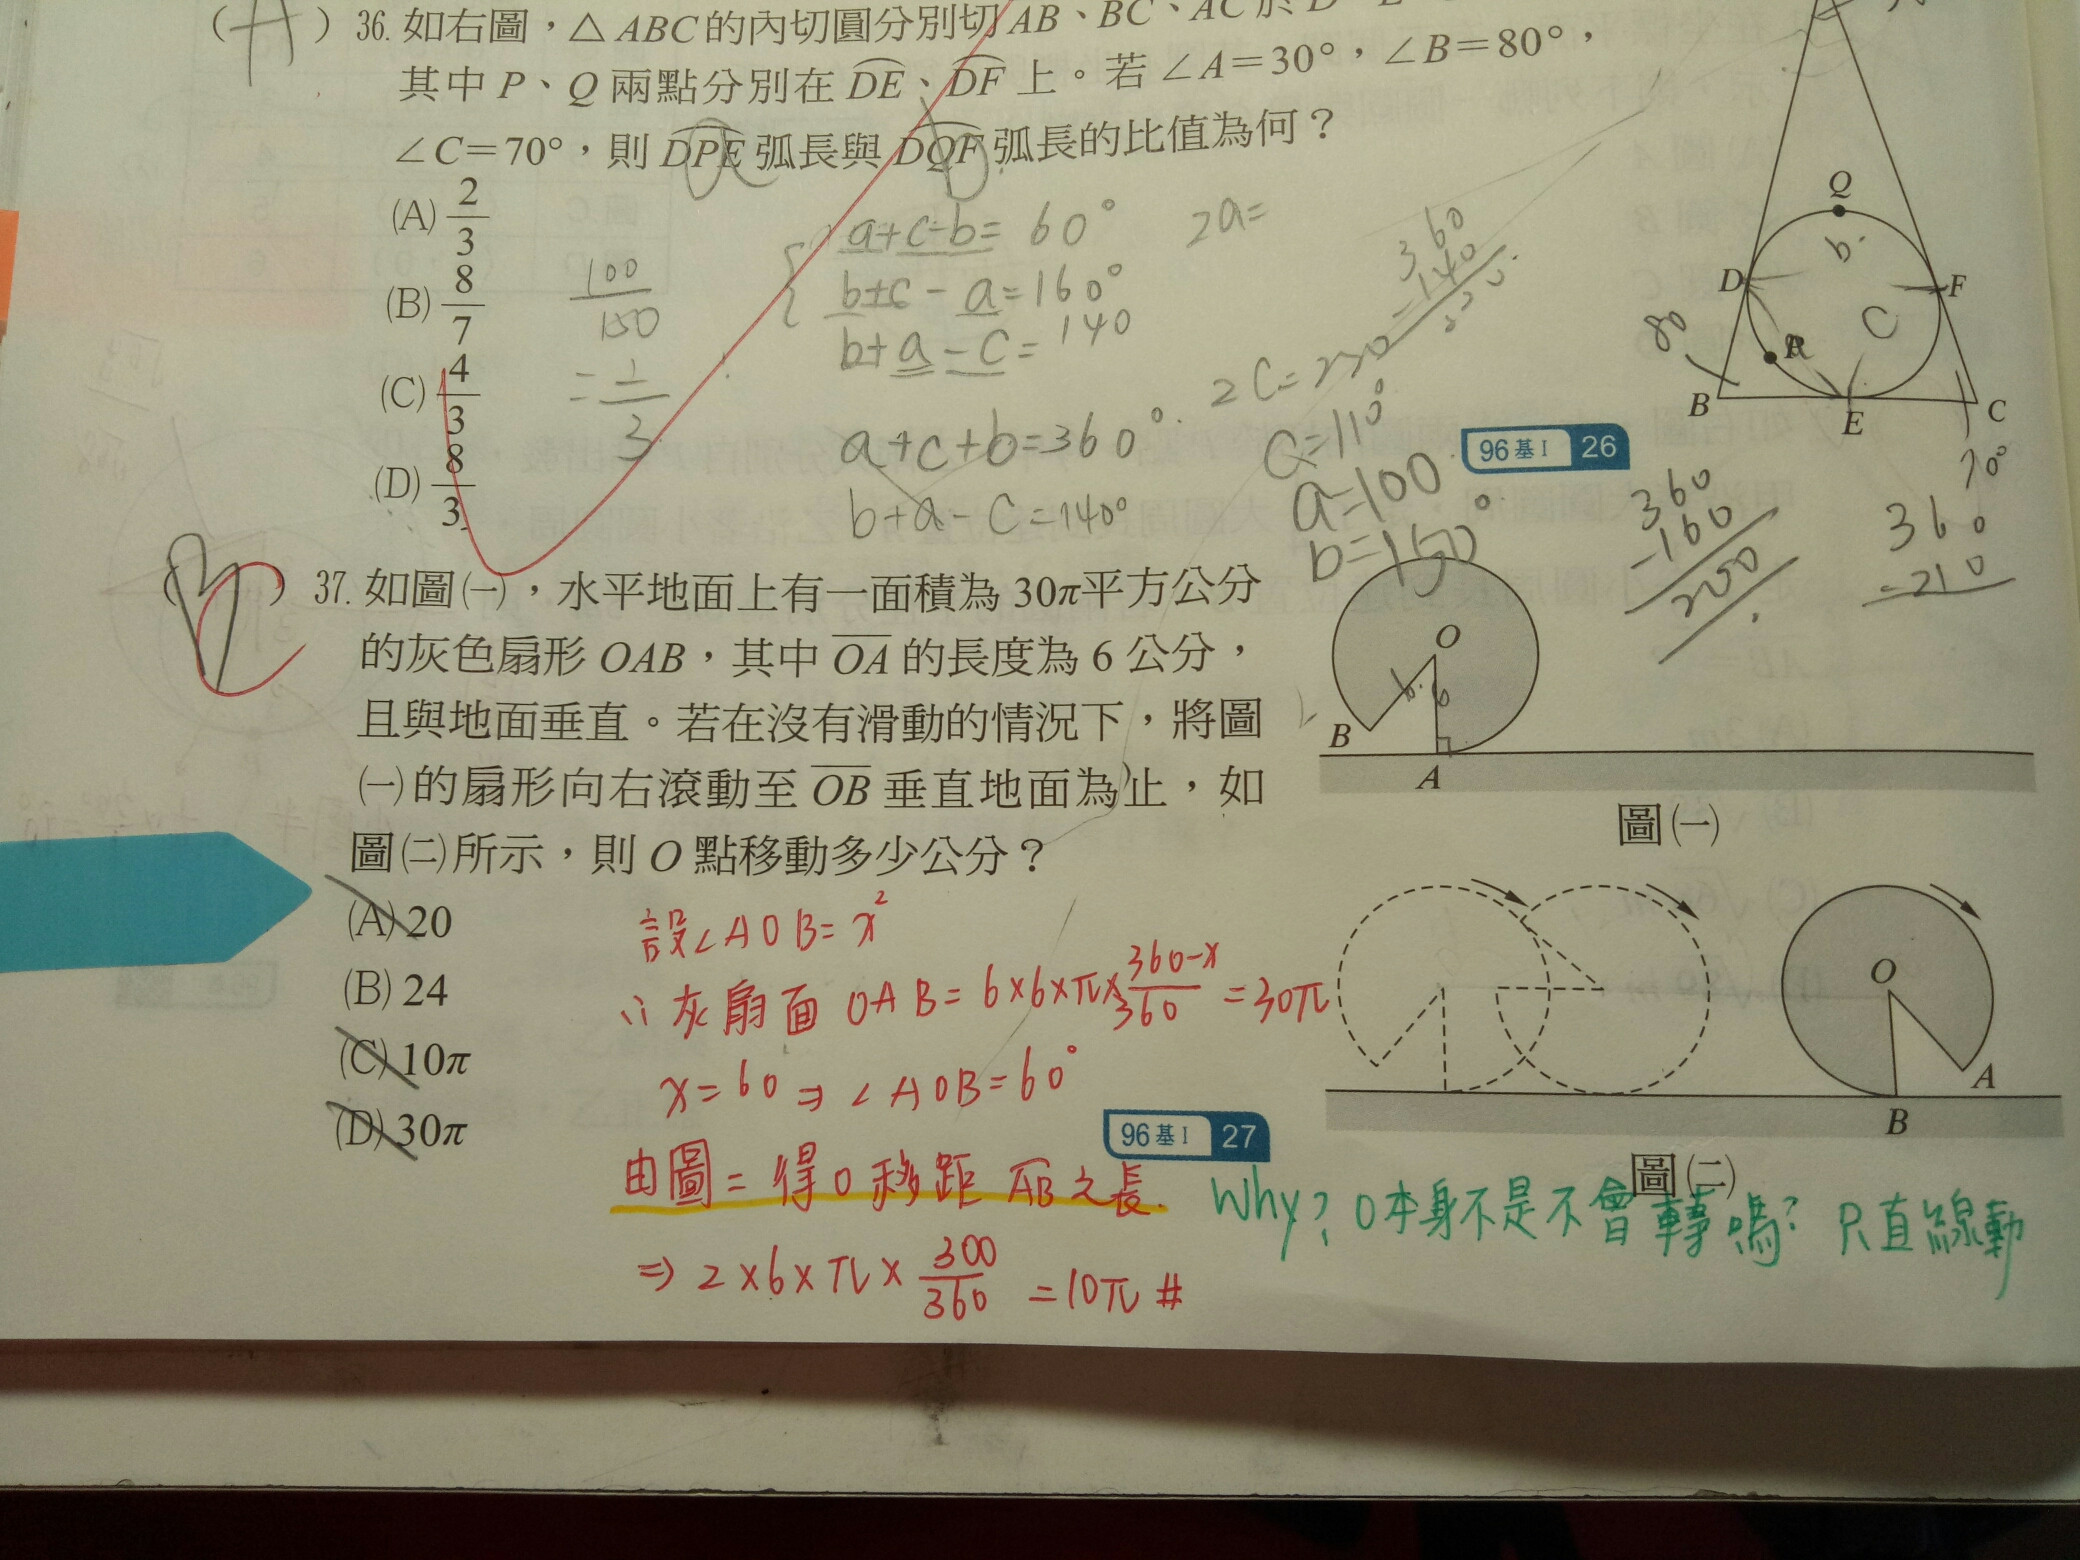 (A) 36. 如右圖，△ABC的內切圓分別切 AB、BC、AC 於 D
其中 P、Q 兩點分別在 DE、DF 上。若 ∠A=30°，∠B=80°，
∠C=70°，則 DPE 弧長與 DQF 弧長的比值為何？
(A) 2/3
(B) 8/7
(C) 4/3
(D) 8/3
100/150
a+c-b=60°
b+c-a=160°
b+a-c=140
2a=
360
-140
2C=220
a+c+b=360°
b+a-c=140°
C=110°
a=100
b=150°
Q
b
D
F
C
P
a
80
B
E
C
70°
96基I 26
360
-160
200
360
-210
37. 如圖(一)，水平地面上有一面積為 30π平方公分
的灰色扇形 OAB，其中 OA 的長度為 6 公分，
且與地面垂直。若在沒有滑動的情況下，將圖
(一)的扇形向右滾動至 OB 垂直地面為止，如
圖(二)所示，則 O 點移動多少公分？
(A) 20
(B) 24
(C) 10π
(D) 30π
O
6
6
B
A
圖(一)
O
A
B
圖(二)
設∠AOB=x°
∵灰扇面OAB=6×6×π×360-x/360=30π
x=60⇒∠AOB=60°
96基I 27
由圖=得O移距 AB之長.
⇒2×6×π×300/360=10π#
Why? O本身不是不會轉嗎? 只直線動